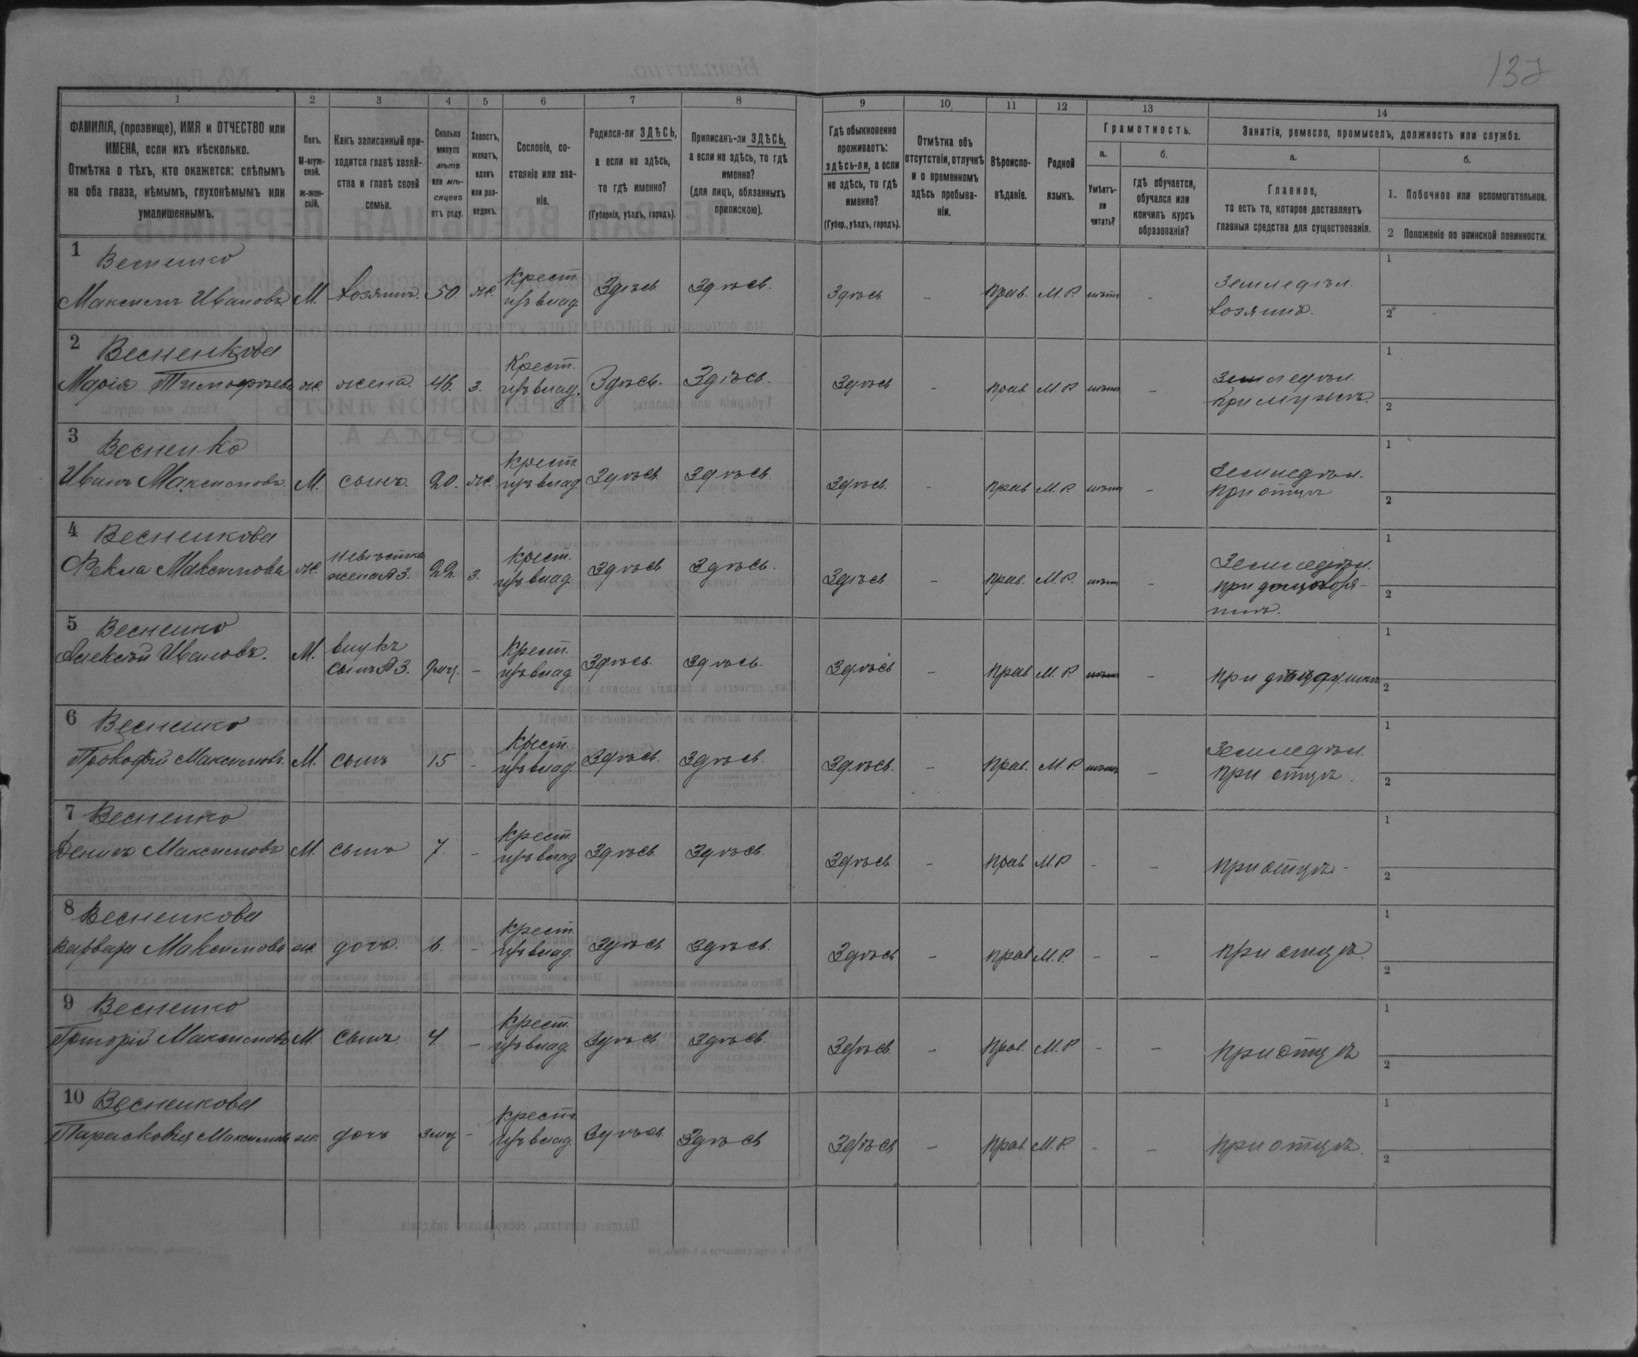 137
1 2 3 4 5 6 7 8 9 10 11 12 13 14
ФАМИЛІЯ, (прозвище), ИМЯ и ОТЧЕСТВО или ИМЕНА, если ихъ нѣсколько.
Отмѣтка о тѣхъ, кто окажется: слѣпымъ на оба глаза, нѣмымъ, глухонѣмымъ или умалишеннымъ.
Полъ.
М-мужской.
ж-женскій.
Какъ записанный приходится главѣ хозяйства и главѣ своей семьи.
Сколько минуло лѣтъ или мѣсяцевъ отъ роду.
Холостъ, женатъ, вдовъ или разведенъ.
Сословіе, состояніе или званіе.
Родился-ли ЗДѢСЬ, а если не здѣсь, то гдѣ именно?
(Губернія, уѣздъ, городъ).
Приписанъ-ли ЗДѢСЬ, а если не здѣсь, то гдѣ именно?
(для лицъ, обязанныхъ припискою).
Гдѣ обыкновенно проживаетъ: здѣсь-ли, а если не здѣсь, то гдѣ именно?
(Губер., уѣздъ, городъ).
Отмѣтка объ отсутствіи, отлучкѣ и о временномъ здѣсь пребываніи.
Вѣроисповѣданіе.
Родной языкъ.
Грамотность.
а.
Умѣетъ-ли читать?
б.
Гдѣ обучается, обучался или кончилъ курсъ образованія?
Занятія, ремесло, промыселъ, должность или служба.
а.
Главное,
то есть то, которое доставляетъ главныя средства для существованія.
б.
1. Побочное или вспомогательное.
2 Положеніе по воинской повинности.
1 Весненко
Максимъ Ивановъ М. хозяинъ. 50. ж. Крест. изъ влад. Здѣсь Здѣсь. Здѣсь - прав. М.Р. нѣтъ - Земледѣл. хозяинъ. 1 2
2 Весненкова
Марія Тимофѣева ж жена. 46. з. Крест. изъ влад. Здѣсь. Здѣсь. Здѣсь прав М.Р нѣтъ - Земледѣл при мужѣ. 1 2
3 Весненко
Иванъ Максимовъ М. сынъ. 20. ж. крест изъ влад Здѣсь Здѣсь Здѣсь - прав М.Р нѣтъ - Земледѣл. при отцѣ 1 2
4 Весненкова
Фекла Максимова ж. невѣстка жена № 3. 22. з. крест. изъ влад Здѣсь Здѣсь. Здѣсь - прав. М.Р. нѣтъ - Земледѣл. 1 2
5 Весненко
Алексѣй Ивановъ. М. внукъ сынъ № 3. - Крест. изъ влад Здѣсь. Здѣсь. Здѣсь - прав М.Р нѣтъ - при дѣдушкѣ 1 2
6 Весненко
Прокофій Максимовъ М. сынъ 15 - Крест изъ влад. Здѣсь. Здѣсь. Здѣсь. - Прав. М.Р нѣтъ - Земледѣл при отцѣ. 1 2
7 Весненко
Денисъ Максимовъ М. сынъ 7. - Крест изъ влад Здѣсь. Здѣсь. Здѣсь - Прав М.Р - - при отцѣ - 1 2
8 Весненкова
Варвара Максимова ж. дочь. 6. - крест. изъ влад. Здѣсь Здѣсь. Здѣсь - прав М.Р. - - при отцѣ. 1 2
9 Весненко
Григорій Максимовъ М. сынъ 4. - Крест. изъ влад. Здѣсь Здѣсь. Здѣсь. - Прав. М.Р - - при отцѣ 1 2
10 Весненкова
Парасковия Максимова ж. дочь - крест изъ влад. Здѣсь. Здѣсь Здѣсь - Прав. М.Р. - - при отцѣ. 1 2